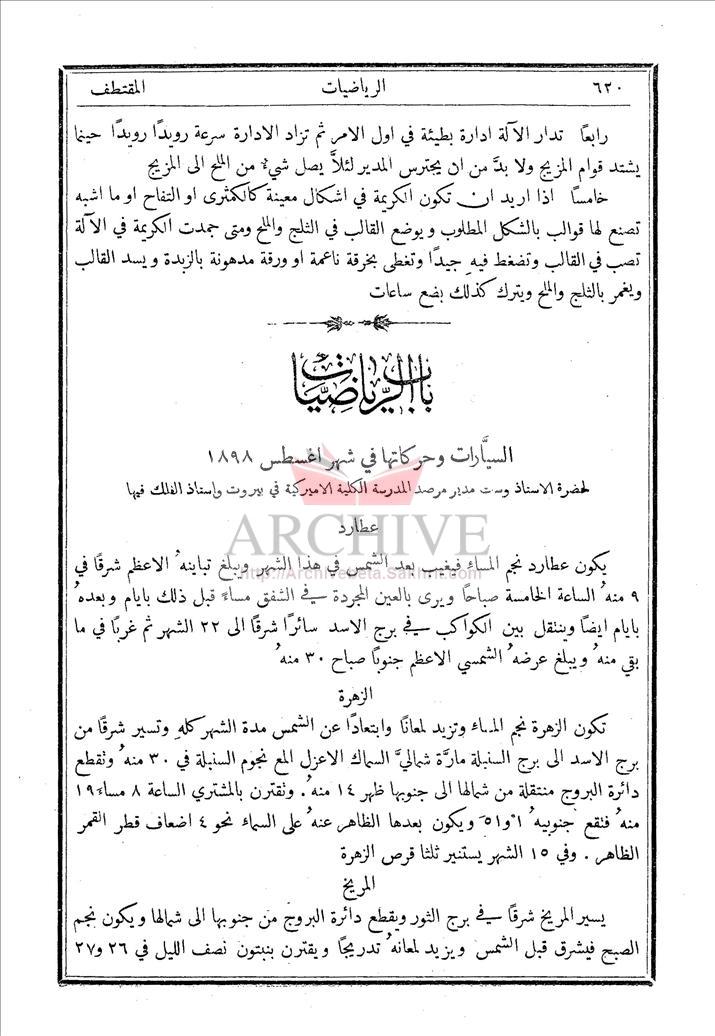 ٦٢٠ الرياضيات المقتطف
رابعًا تدار الآلة ادارة بطيئة في اول الامر ثم تزاد الادارة سرعة رويدًا رويدًا حينما
يشتد قوام المزيج ولا بدَّ من ان يحترس المدير لئلاَّ يصل شيءٌ من الملح الى المزيج
خامسًا اذا اريد ان تكون الكريمة في اشكال معينة كالكمثرى او التفاح او ما اشبه
تصنع لها قوالب بالشكل المطلوب ويوضع القالب في الثلج والملح ومتى جمدت الكريمة في الآلة
تصب في القالب وتضغط فيهِ جيدًا وتغطى بخرقة ناعمة او ورقة مدهونة بالزبدة ويسد القالب
ويغمر بالثلج والملح ويترك كذلك بضع ساعات
باب الرياضيات
السيَّارات وحركاتها في شهر اغسطس ١٨٩٨
لحضرة الاستاذ وست مدير مرصد المدرسة الكلية الاميركية في بيروت واستاذ الفلك فيها
ARCHIVE
http://Archivebeta.Sakhrit.com
عطارد
يكون عطارد نجم المساء فيغيب بعد الشمس في هذا الشهر ويبلغ تباينهُ الاعظم شرقًا في
٩ منهُ الساعة الخامسة صباحًا ويرى بالعين المجردة في الشفق مساءً قبل ذلك بايام وبعدهُ
بايام ايضًا وينتقل بين الكواكب في برج الاسد سائرًا شرقًا الى ٢٢ الشهر ثم غربًا في ما
بقي منهُ ويبلغ عرضهُ الشمسي الاعظم جنوبًا صباح ٣٠ منهُ
الزهرة
تكون الزهرة نجم المساء وتزيد لمعانًا وابتعادًا عن الشمس مدة الشهر كلهِ وتسير شرقًا من
برج الاسد الى برج السنبلة مارَّة شماليَّ السماك الاعزل المع نجوم السنبلة في ٣٠ منهُ وتقطع
دائرة البروج منتقلة من شمالها الى جنوبها ظهر ١٤ منهُ. وتقترن بالمشتري الساعة ٨ مساء ١٩
منهُ فتقع جنوبيهُ ١° و٥١ ويكون بعدها الظاهر عنهُ على السماء نحو ٤ اضعاف قطر القمر
الظاهر. وفي ١٥ الشهر يستنير ثلثا قرص الزهرة
المريخ
يسير المريخ شرقًا في برج الثور ويقطع دائرة البروج من جنوبها الى شمالها ويكون نجم
الصبح فيشرق قبل الشمس ويزيد لمعانهُ تدريجًا ويقترن بنبتون نصف الليل في ٢٦ و٢٧